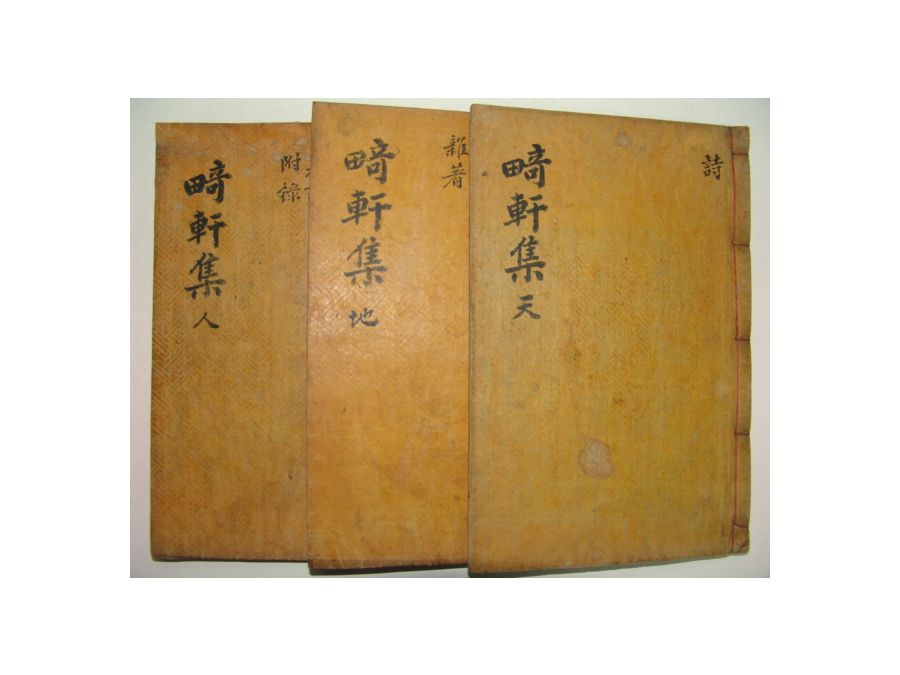 詩
畸軒集 天
雜著
畸軒集 地
附錄
畸軒集 人